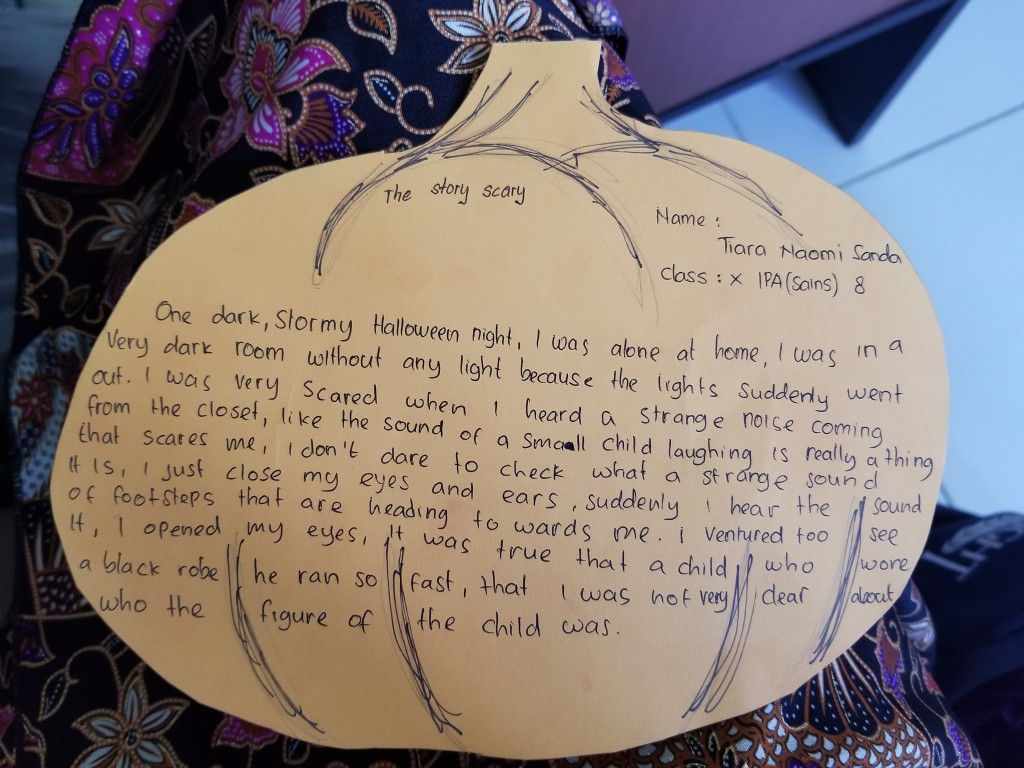 The story scary
Name :
Tiara Naomi Sanda
Class : X IPA (Sains) 8
One dark, Stormy Halloween night, I was alone at home, I was in a
Very dark room without any light because the lights suddenly went
out. I was very scared when I heard a strange noise coming
from the closet, like the sound of a small child laughing is really a thing
that scares me, i don't dare to check what a strange sound
It Is, I just close my eyes and ears, suddenly i hear the sound
of footsteps that are heading to wards me. i ventured too see
It, I opened my eyes, It was true that a child who wore
a black robe he ran so fast, that I was not very clear about
who the figure of the child was.